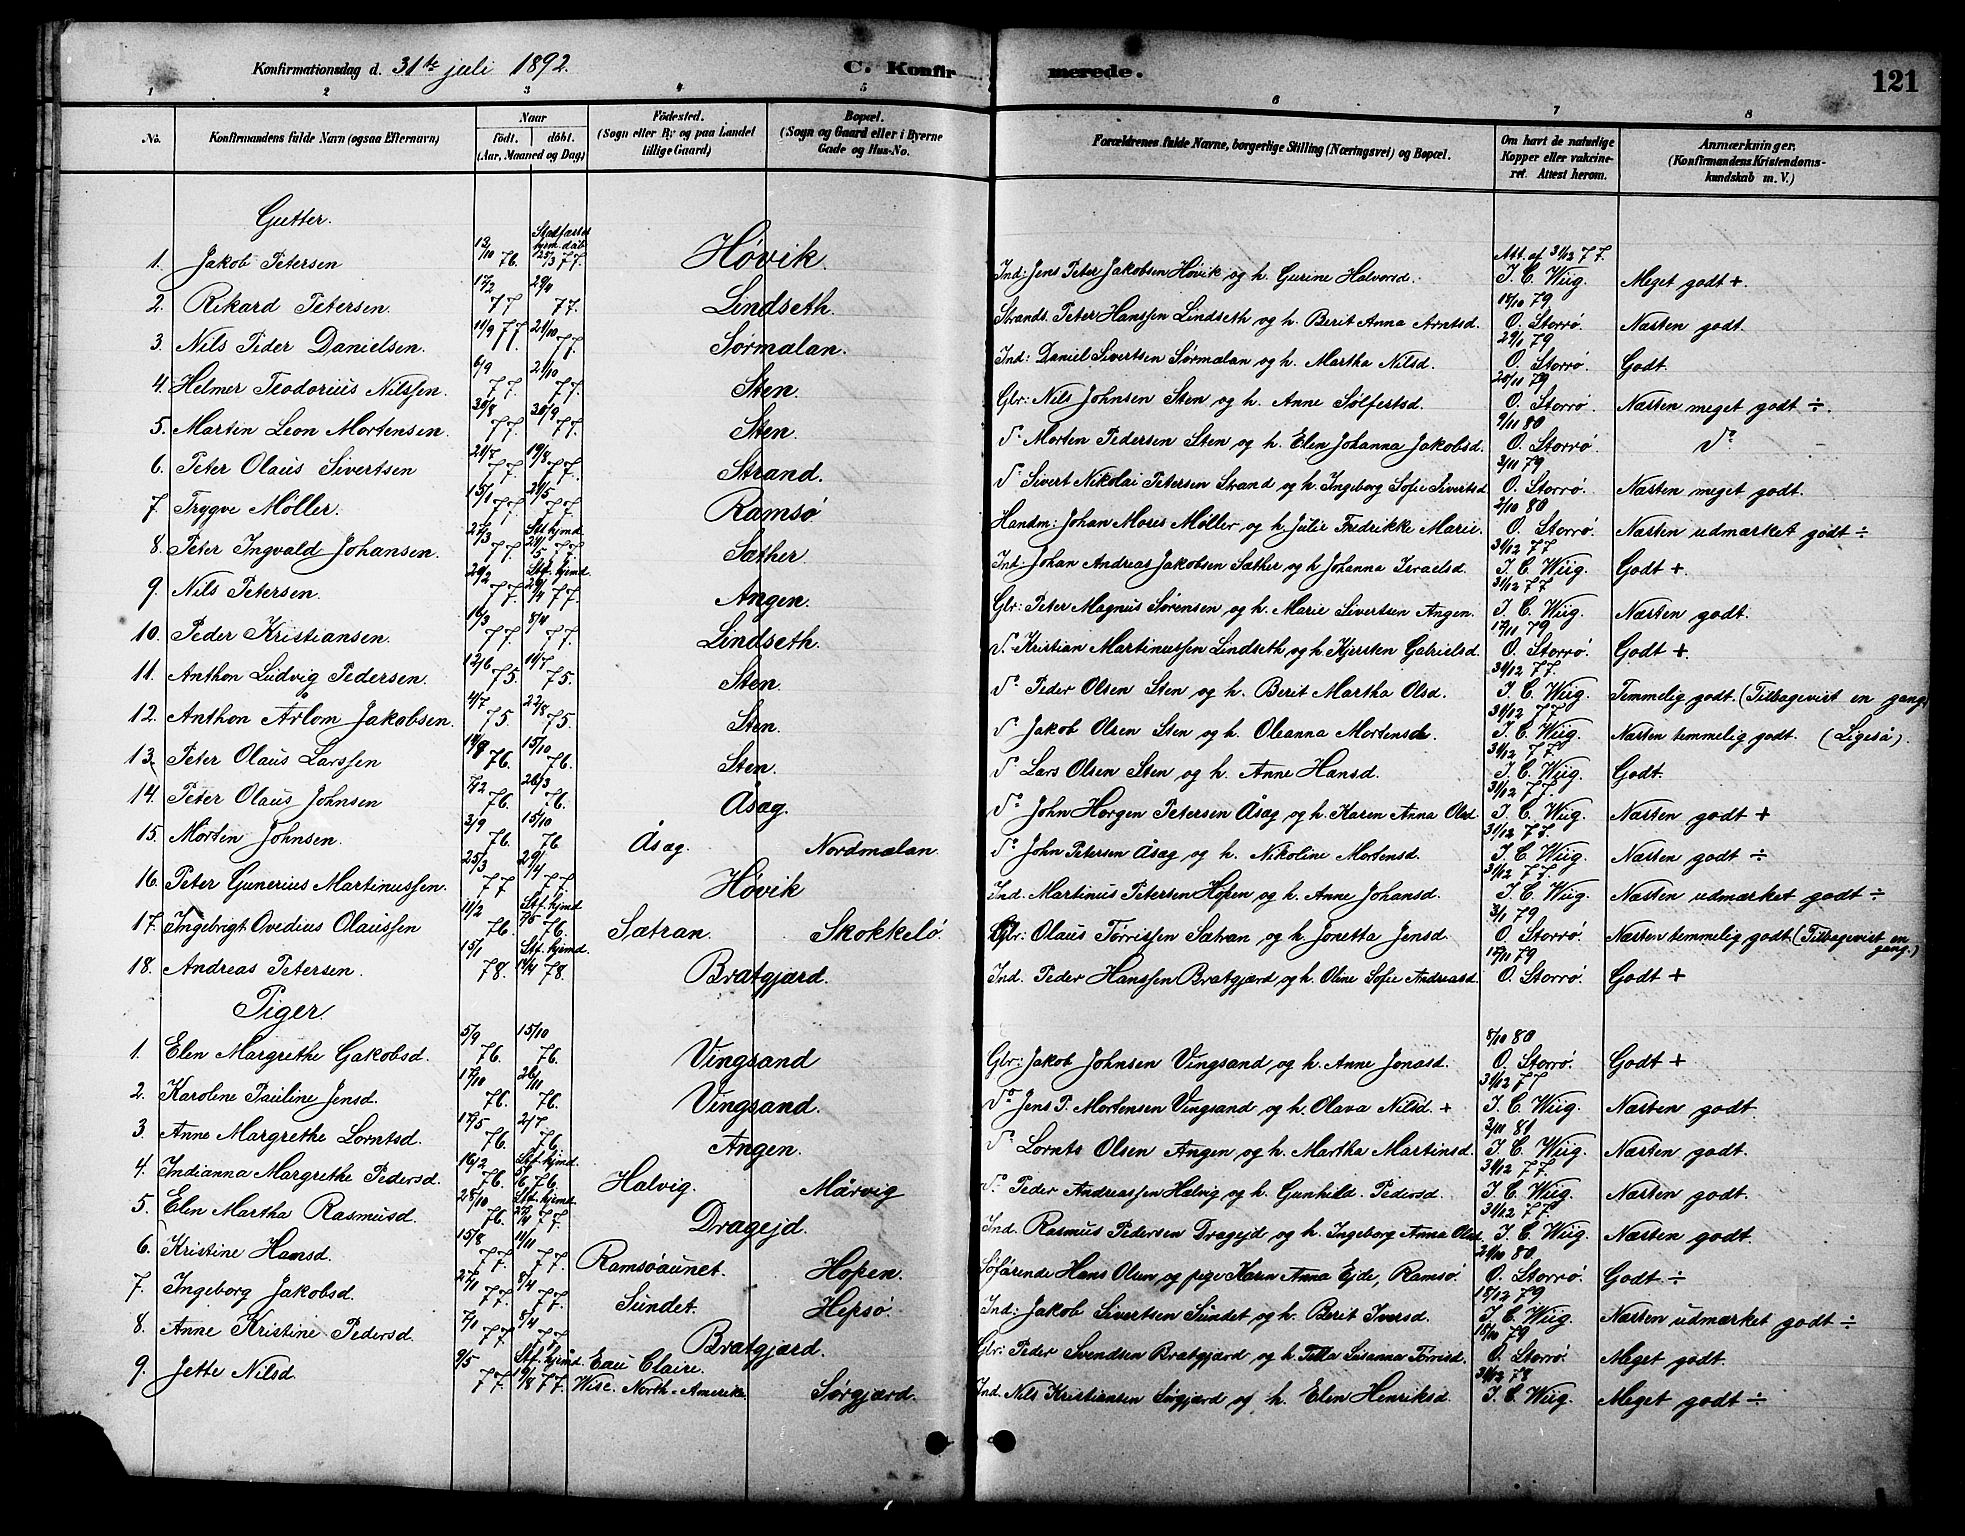 Konfirmationsdag d. 31te juli 1892. C. Konfirmerede. 121
1 2 3 4 5 6 7 8
No. Konfirmandens fulde Navn (ogsaa Efternavn) Naar födt. döbt. (Aar, Maaned og Dag) Födested. (Sogn eller By og paa Landet tillige Gaard) Bopæl. (Sogn og Gaard eller i Byerne Gade og Hus-No. Forældrenes fulde Navne, borgerlige Stilling (Næringsvei) og Bopæl. Om havt de naturlige Kopper eller vakcineret. Attest herom. Anmærkninger. (Konfirmandens Kristendomskundskab m. V.)
Gutter.
1. Jakob Petersen 13/10 76. Stadfæstet hjem.dåb 12/3 77. Høvik. Ind: Jens Peter Jakobsen Høvik og h. Gurine Halvorsd. Att. af 31/12 77. I. C. Wiig. Meget godt +.
2. Rikard Petersen. 77 77. Lindseth. Strands. Peter Hanssen Lindseth og h. Berit Anna Arntsd. 18/10 79 O. Storrø. Næsten godt.
3. Nils Peder Danielsen. 19/9 77. 21/10 77. Sørmalan. Ind: Daniel Sivertsen Sørmalan og h. Martha Nilsd. 29/1 79 O. Storrø. Godt.
4. Helmer Teodorius Nilssen. 6/9 77. 21/10 77. Sten. Gbr: Nils Johnsen Sten og h. Anne Sølfestsd. 20/11 79 O. Storrø. Næsten meget godt ÷.
5. Martin Leon Mortensen. 30/8 77. 30/9 77. Sten. d° Morten Pedersen Sten og h. Elen Johanna Jakobsd. 9/11 80 O. Storrø. d°
6. Peter Olaus Sivertsen 21/7 77. 19/8 77. Strand. d° Sivert Nikolai Petersen Strand og h. Ingeborg Sofie Sivertsd. 3/11 79 O. Storrø. Næsten meget godt.
7. Trygve Møller. 15/1 77. 21/5 77. Ramsø Handm: Johan Moses Møller og h. Julie Fredrikke Marie 2/10 80 O. Storrø. Næsten udmærket godt ÷
8. Peter Ingvald Johansen. 23/3 77. Stf. hjmd 21/5 77. Sæther. Ind: Johan Andreas Jakobsen Sæther og h Johanna Israelsd. 31/12 77 I. C. Wiig. Godt +.
9. Nils Petersen. 20/2 77. Stf. hjmd. 29/4 77. Angen. Gbr: Peter Magnus Sørensen og h. Marie Sivertsen Angen. 31/12 77. I. C. Wiig. Næsten godt.
10. Peder Kristiansen. 16/3 77. 8/4 77. Lindseth. d°. Kristian Martinussen Lindseth og h Kjersten Gabrielsd. 12/11 79 O. Storrø. Godt +.
11. Anthon Ludvig Pedersen. 12/6 75. 11/7 75. Sten. d° Peder Olsen Sten og h. Berit Martha Olsd. 31/12 77. I. C. Wiig. Temmelig godt. (Tilbagevist en gang)
12. Anthon Arlom Jakobsen. 4/7 75. 22/8 75. Sten. d° Jakob Olsen Sten og h. Oleanna Mortensd. 31/12 77. I. C. Wiig. Næsten temmelig godt. (Ligeså).
13. Peter Olaus Larssen 14/8 76. 15/10 76. Sten. d° Lars Olsen Sten og h. Anne Hansd. 31/12 77. I. C. Wiig. Godt.
14. Peter Olaus Johnsen 7/2 76. 26/3 76. Åsæg. d° John Horgen Petersen Åsæg og h. Karen Anna Olsd. 31/12 77. I. C. Wiig. Næsten godt +
15. Morten Johnsen. 3/9 76. 15/10 76 Åsæg. Nordmalan. d° John Petersen Åsæg og h. Nikoline Mortensd. 31/12 77. I. C. Wiig. Næsten godt ÷
16. Peter Gunerius Martinussen. 25/3 77 29/4 77 Høvik Ind. Martinus Petersen Hopen og h. Anne Johansd. 31/12 77. I. C. Wiig. Næsten udmærket godt ÷
17. Ingebrigt Ovedius Olaussen 11/2 76. Stf. hjmd 7/5 76. Sætran. Skokkelö. Gbr: Olaus Tørrissen Sætran og h. Jonetta Jensd. 3/1 79 O. Storrø. Næsten temmelig godt (Tilbagevist en gang.)
18. Andreas Petersen. 15/1 78. Stf. hjmd. 14/4 78. Bratgjærd. Ind. Peder Hanssen Bratgjærd og h. Oline Sofie Andreasd. 12/11 79 O. Storrø. Godt +
Piger.
1. Elen Margrethe Gakobsd. 5/9 76. 15/10 76. Vingsand Gbr: Jakob Johnsen Vingsand og h. Anne Jonasd. 8/10 80 O. Storrø. Godt +
2. Karoline Pauline Jensd. 12/10 76. 26/11 76. Vingsand. d° Jens P. Mortensen Vingsand og h. Olava Nilsd. + 31/12 77 I. C. Wiig. Næsten godt.
3. Anne Margrethe Lorntsd. 17/5 76. 2/7 76. Angen. d° Lornts Olsen Angen og h. Martha Martinsd. 2/11 81 I. C. Wiig. Næsten godt.
4. Indianna Margrethe Pedersd. 16/2 76. Stf. hjmd. 5/6 76. Halvig. Mårvig d° Peder Andreassen Halvig og h. Gunhild Pedersd. 31/12 77. I. C. Wiig Næsten godt.
5. Elen Martha Rasmusd. 28/10 76. Stf. hjmd. 22/4 77. Dragejd. Ind. Rasmus Pedersen Dragejd og h. Ingeborg Anna Olsd. 31/12 77. I. C. Wiig. Næsten godt.
6. Kristine Hansd. 15/8 77. 11/11 77. Ramsøaunet. Hopen. Söfarende Hans Olsen og pige Karen Anna Ejde, Ramsø. 21/10 80. O. Storrø. Godt ÷
7. Ingeborg Jakobsd. 27/1 77. 8/4 77. Sundet. Hepsø. Ind: Jakob Sivertsen Sundet og h. Berit Iversd. 18/12 79 I. C. Wiig. Næsten udmærket godt ÷
8. Anne Kristine Pedersd. 7/1 77. 8/4 77. Bratgjærd. Gbr. Peder Svendsen Bratgjærd og h. Tella Susanna Tørrisd. 18/10 79 O. Storrø. Meget godt.
9. Jette Nilsd. 9/5 77. Stf. hjmd 19/8 77. Eau Claire. Wisc. North-Amerika Sørgjærd. Ind. Nils Kristiansen Sørgjærd og h. Elen Henriksd. 31/12 78 I. C. Wiig. Meget godt ÷